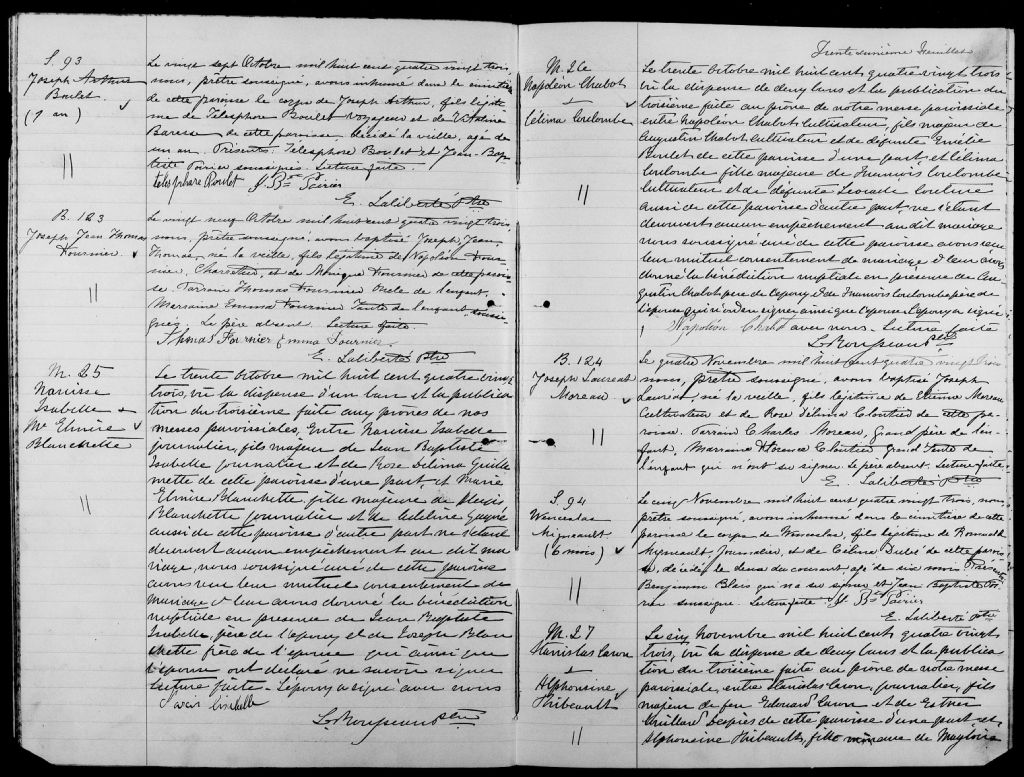 S. 93
Joseph Arthur
Boulet
(1 an)
Le vingt sept Octobre mil huit cent quatre vingt trois,
nous, prêtre soussigné, avons inhumé dans le cimetière
de cette paroisse le corps de Joseph Arthur, fils légiti-
me de Télesphore Boulet voyageur et de
de cette paroisse décédé la veille, agé de
un an. Présents. Télesphore Boulet et Jean-Bap-
tiste Poirier soussignés. Lecture faite.
Télesphore Boulet J. Bte Poirier
E. Laliberté Ptre
B. 123
Joseph Jean Thomas
Fournier
Le vingt neuf Octobre mil huit cent quatre vingt trois,
nous, prêtre soussigné, avons baptisé Joseph, Jean,
Thomas, né la veille, fils légitime de Napoléon Four-
nier, Charretier, et de Monique Fournier de cette parois-
se. Parrain Thomas Fournier Oncle de l'enfant.
Marraine Emma Fournier Tante de l'enfant, soussi-
gnés. Le père absent. Lecture faite.
Thomas Fournier Emma Fournier
E. Laliberté Ptre
M. 25
Narcisse
Isabelle &
Me Elmire
Blanchette
Le trente Octobre mil huit cent quatre vingt
trois, vu la dispense d'un ban et la publica-
tion du troisième faite aux prones de nos
messes paroissiales, Entre Narcisse Isabelle
journalier, fils majeur de Jean Baptiste
Isabelle journalier et de Rose Délima Guille-
mette de cette paroisse d'une part, et Marie
Elmire Blanchette, fille majeure de
Blanchette journalier et de Adeline Gagné
aussi de cette paroisse d'autre part, ne s'étant
découvert aucun empêchement au dit ma-
riage, nous soussigné curé de cette paroisse
avons reçu leur mutuel consentement de
mariage & leur avons donné la bénédiction
nuptiale en presence de Jean Baptiste
Isabelle, père de l'epoux et de Joseph Blan-
chette frère de l'epouse qui ainsi que
l'epouse ont déclaré ne savoir signer
Lecture faite. L'epoux a signé avec nous
L. Ptre
Trente unième Feuillet
M. 26
Napoléon Chabot
&
Célina Coulombe
Le trente Octobre mil huit cent quatre vingt trois
vu la dispense de deux bans et la publication du
troisième faite au prône de notre messe paroissiale
entre Napoléon Chabot Cultivateur, fils majeur de
Augustin Chabot Cultivateur et de défunte Emélie
Boulet de cette paroisse d'une part et Célina
Coulombe fille majeure de François Coulombe
Cultivateur et de défunte Léocadie Couture
aussi de cette paroisse d'autre part, ne s'étant
découvert aucun empêchement au dit mariage
nous soussigné curé de cette paroisse avons reçu
leur mutuel consentement de mariage & leur avons
donné la bénédiction nuptiale en presence de Au-
gustin Chabot père de l'epoux, & de François Coulombe père de
l'epouse qui n'ont su signer ainsi que l'epouse l'epoux a signé
Napoléon Chabot avec nous. Lecture faite
L. Ptre
B. 124
Joseph Laureat
Moreau
Le quatre Novembre mil huit cent quatre vingt trois
nous, prêtre soussigné, avons baptisé Joseph
Laureat, né la veille, fils légitime de Etienne Moreau
Cultivateur et de Rose d'élima Cloutier de cette pa-
roisse. Parrain Charles Moreau, Grand père de l'en-
fant, Marraine Florence Cloutier grand Tante de
l'enfant qui n'ont su signer. Le père absent. Lecture faite.
E. Laliberté Ptre
S. 94
Wenceslas
Migneault
(6 mois)
Le cinq Novembre mil huit cent quatre vingt trois, nous,
prêtre soussigné, avons inhumé dans le cimetière de cette
paroisse le corps de Wenceslas, fils légitime de Romuald
Migneault, Journalier, et de Célina Dubé de cette parois-
se, décédé le deux du courant, agé de six mois. Présents
Benjamin Blais qui n'a su signer et Jean Baptiste Poi-
rier soussigné. Lecture faite. J. Bte Poirier
E. Laliberté Ptre
M. 27
Stanislas Caron
&
Alphonsine
Thibeault
Le six Novembre mil huit cent quatre vingt
trois, vu la dispense de deux bans et la publica-
tion du troisième faite au prône de notre messe
paroissiale, entre Stanislas Caron, journalier, fils
majeur de feu Edouard Caron et de Esther
de cette paroisse d'une part et
Alphonsine Thibeault, fille mineure de Magloire